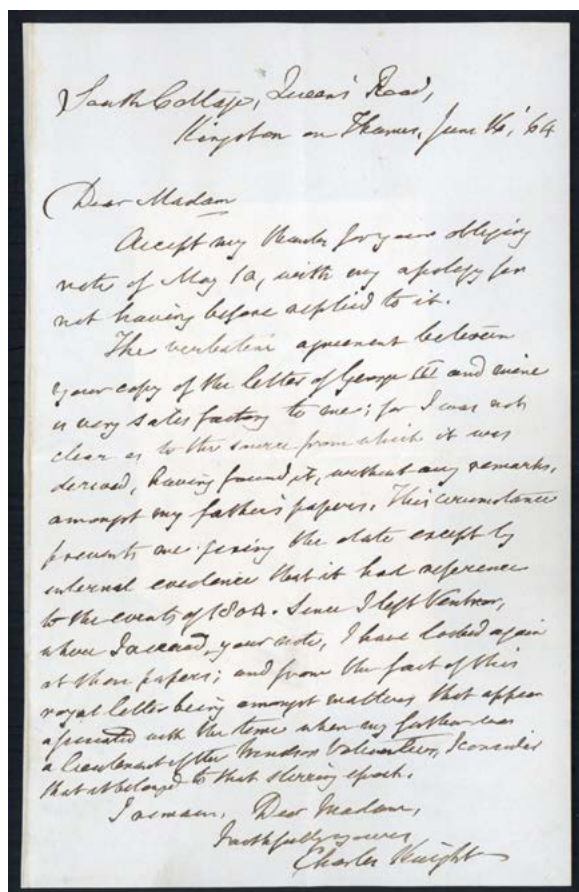 South Cottage, Queens' Road,
Kingston on Thames, June 16, '64
Dear Madam
Accept my thanks for your obliging
note of May 10, with my apology for
not having before replied to it.
The verbatim agreement between
your copy of the letter of George III and mine
is very satisfactory to me; for I was not
clear as to the source from which it was
derived, having found it, without any remarks,
amongst my father's papers. This circumstance
prevents me fixing the date except by
internal evidence that it had reference
to the events of 1804. Since I left Ventnor,
where I received, your note, I have looked again
at these papers; and from the fact of this
royal letter being amongst matters that appear
associated with the time when my father was
a Lieutenant of the Windsor Volunteers, I consider
that it belonged to that stirring epoch.
I remain, Dear Madam,
Faithfully yours
Charles Knight